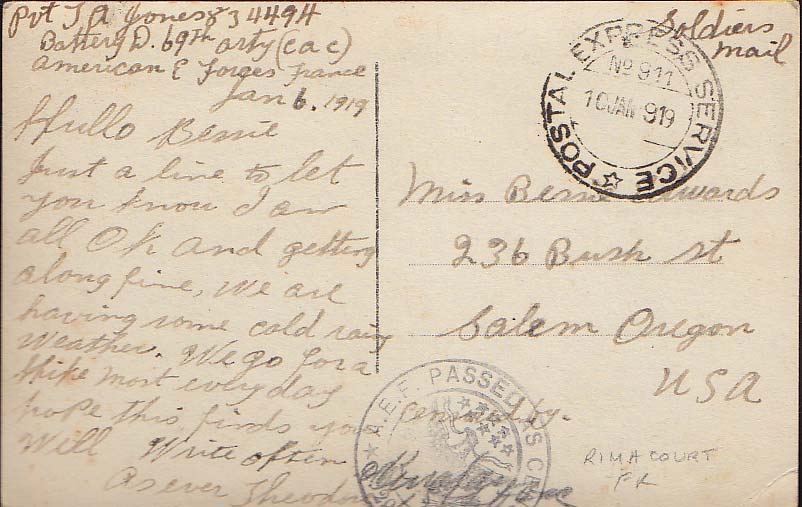 Pvt T A Jones 234494
Battery D. 69th arty (c a c)
American E Forces France
Jan 6. 1919
Hullo Bessie
Just a line to let
you know I am
all Ok and getting
along fine, We are
having some cold rainy
Weather. We go for a
Hike most every day
hope this finds you
Well Write often
As ever Theodore
Soldiers
mail
POSTAL EXPRESS SERVICE
No 911
10 JAN 919
Miss Bessie Edwards
236 Bush st
Salem Oregon
USA
Censored by.
A.E.F. PASSED AS CENSORED
RIMACOURT
FR